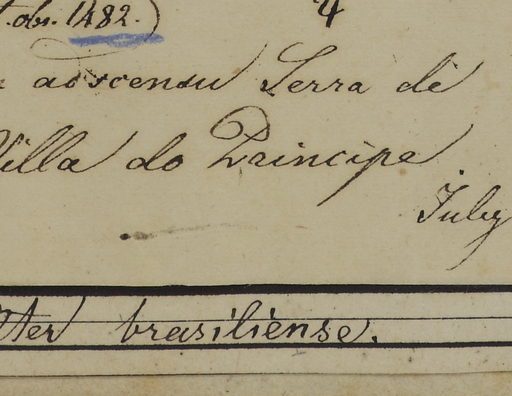 obs. 1482.) 4
adscensu Serra de
Villa do Principe.
July
brasiliense.